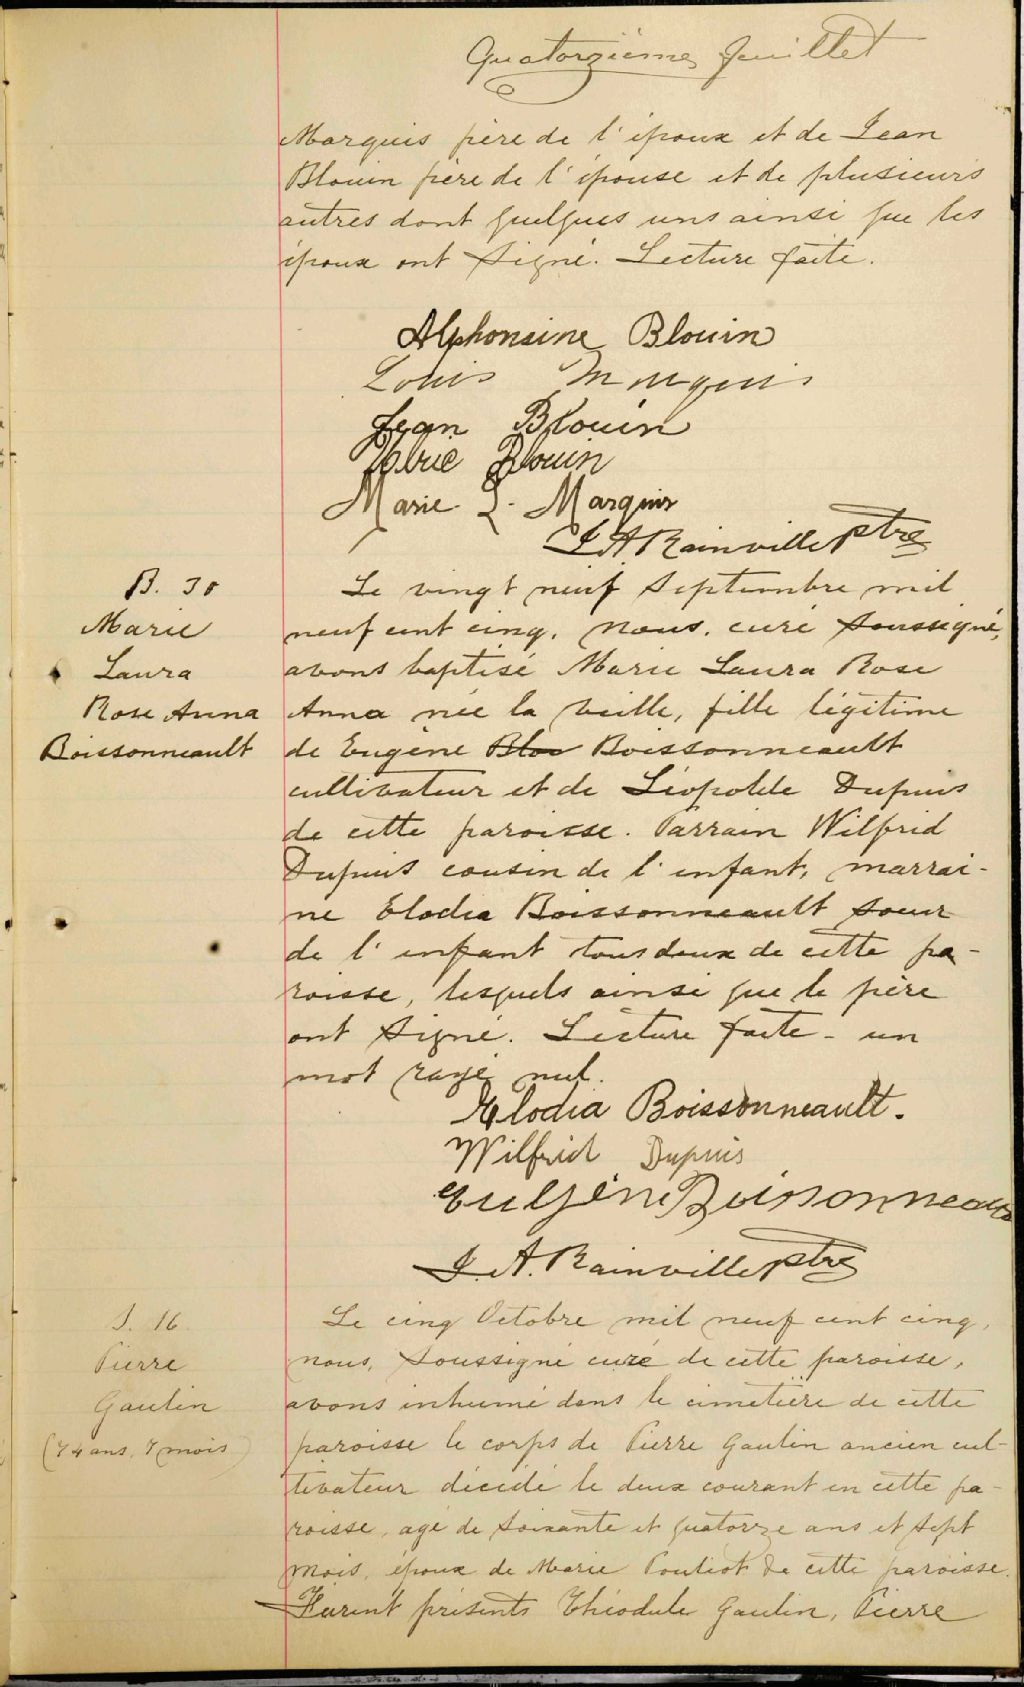 Quatorzième feuillet
Marquis père de l'époux et de Jean
Blouin père de l'épouse et de plusieurs
autres dont quelques uns ainsi que les
époux ont signé. Lecture faite.
Alphonsine Blouin
Louis Marquis
Jean Blouin
Blouin
Marie L. Marquis
J A Rainville ptre
B. 38
Marie
Laura
Rose Anna
Boissonneault
Le vingt neuf Septembre mil
neuf cent cinq, nous, curé soussigné,
avons baptisé Marie Laura Rose
Anna née la veille, fille légitime
de Eugène Blou Boissonneault
cultivateur et de Léopolde Dupuis
de cette paroisse. Parrain Wilfrid
Dupuis cousin de l'enfant, marrai-
ne Elodia Boissonneault soeur
de l'enfant tous deux de cette pa-
roisse, lesquels ainsi que le père
ont signé. Lecture faite - un
mot rayé nul.
Elodia Boissonneault.
Wilfrid Dupuis
Eugène Boissonneault
J. A. Rainville ptre
S. 16
Pierre
Gaulin
(74 ans, 7 mois)
Le cinq Octobre mil neuf cent cinq,
nous, soussigné curé de cette paroisse,
avons inhumé dans le cimetière de cette
paroisse le corps de Pierre Gaulin ancien cul-
tivateur décédé le deux courant en cette pa-
roisse, agé de soixante et quatorze ans et sept
mois, époux de Marie Pouliot de cette paroisse.
Furent présents Théodule Gaulin, Pierre